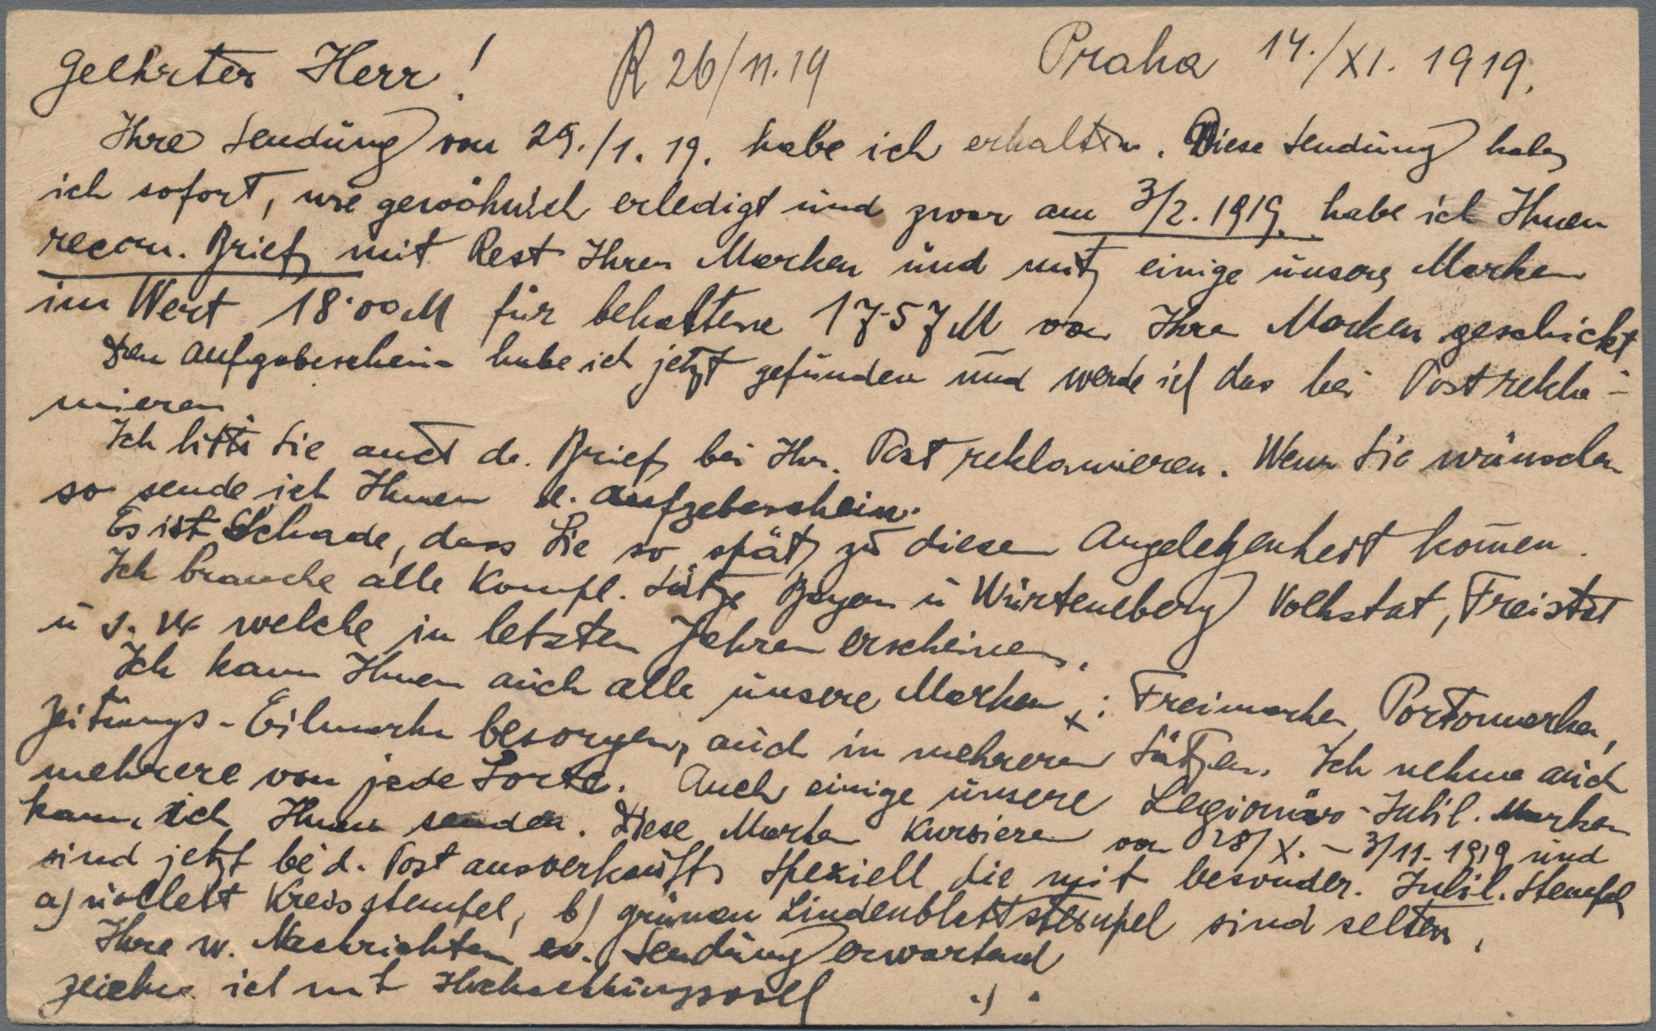 Geehrter Herr! R 26/11.19 Praha 14./XI. 1919.
Ihre Sendung von 29./1. 19. habe ich erhalten. Diese Sendung habe
ich sofort, wie gewöhnlich erledigt und zwar am 3/2. 1919. habe ich Ihnen
recom. Brief mit Rest Ihren Marken und mit einige unsere Marken
im Wert 18·00 M für behaltene 17·57 M von Ihre Marken geschickt
Den Aufgabeschein habe ich jetzt gefunden und werde ich das bei Post rekla-
mieren
Ich bitte Sie auch de. Brief bei Ihr. Post reklamieren. Wenn Sie wünschen
so sende ich Ihnen d. Aufgabeschein.
Es ist Schade, dass Sie so spät zu diesen Angelegenheit kom̄en.
Ich brauche alle Kompl. Sätze Bayern u Würtemberg Volkstat, Freistat
u s. w. welche in letzten Jahren erscheinen.
Ich kann Ihnen auch alle unsere Marken x: Freimarken, Portomarken,
Zeitungs-Eilmarken besorgen, auch in mehreren Sätzen. Ich nehme auch
mehrere von jede Sorte. Auch einige unsere Legionärs-Jubil. Marken
kann ich Ihnen senden. Diese Marken kursieren von 28/X. – 3/11. 1919 und
sind jetzt bei d. Post ausverkauft speziell die mit besonder. Jubil. Stempel
a) violett Kreisstempel, b) grünen Lindenblattstempel sind selten.
Ihre w. Nachrichten ev. Sendung erwartend
zeichne ich mit Hochachtungsvoll